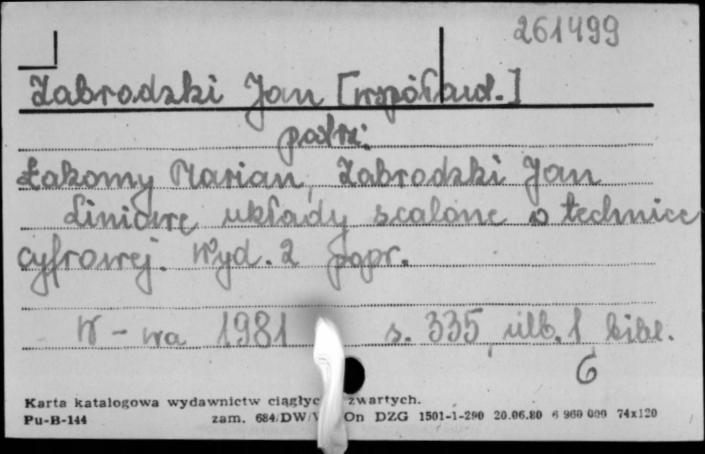 261499
Zabrodzki Jan [współaut.]
patrz:
Łakomy Marian, Zabrodzki Jan
Liniowe układy scalone w technice
cyfrowej. Wyd. 2 popr.
W-wa 1981 s. 335, ulb. 1, bibl.
6
Karta katalogowa wydawnictw ciągłyc zwartych.
Pu-B-144 zam. 684/DW/ On DZG 1501-1-290 20.06.80 6 960 000 74x120